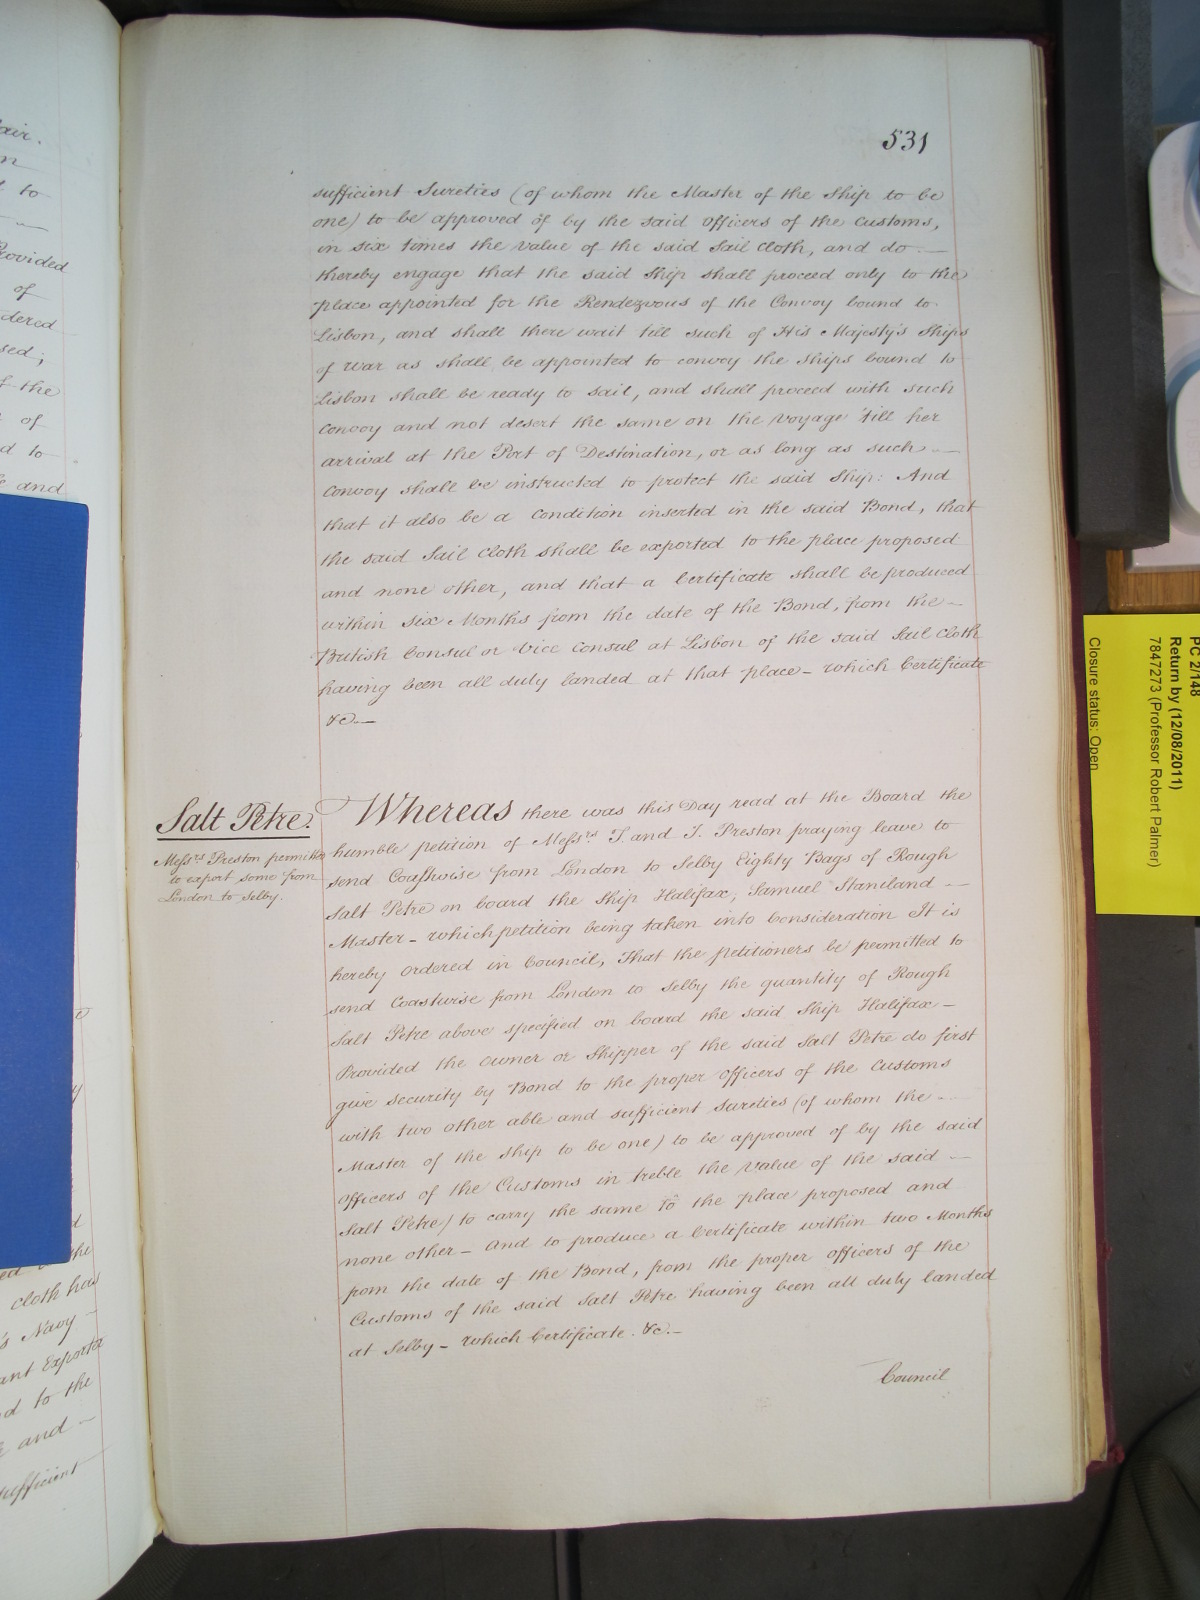 531
sufficient Sureties (of whom the Master of the Ship to be
one) to be approved of by the said Officers of the Customs,
in six times the value of the said Sail Cloth, and do —
thereby engage that the said Ship shall proceed only to the
place appointed for the Rendezvous of the Convoy bound to
Lisbon, and shall there wait till such of His Majesty's Ships
of War as shall be appointed to convoy the Ships bound to
Lisbon shall be ready to sail, and shall proceed with such
Convoy and not desert the same on the Voyage 'till her
arrival at the Port of Destination, or as long as such —
Convoy shall be instructed to protect the said Ship: And
that it also be a Condition inserted in the said Bond, that
the said Sail Cloth shall be exported to the place proposed
and none other, and that a Certificate shall be produced
within six Months from the date of the Bond, from the —
British Consul or Vice Consul at Lisbon of the said Sail Cloth
having been all duly landed at that place — which Certificate
&c —
Salt Petre.
Mess.rs Preston permitted
to export some from
London to Selby.
Whereas there was this Day read at the Board the
humble petition of Mess.rs T. and J. Preston praying leave to
send Coastwise from London to Selby Eighty Bags of Rough
Salt Petre on board the Ship Halifax, Samuel Staniland —
Master — which petition being taken into Consideration It is
hereby ordered in Council, That the petitioners be permitted to
send Coastwise from London to Selby the quantity of Rough
Salt Petre above specified on board the said Ship Halifax —
Provided the Owner or Shipper of the said Salt Petre do first
give security by Bond to the proper Officers of the Customs
with two other able and sufficient sureties (of whom the —
Master of the Ship to be one) to be approved of by the said
Officers of the Customs in treble the value of the said —
Salt Petre) to carry the same to the place proposed and
none other — And to produce a Certificate within two Months
from the date of the Bond, from the proper Officers of the
Customs of the said Salt Petre having been all duly landed
at Selby — which Certificate. &c. —
Council
air.
n
to
Provided
of
dered
sed;
f the
of
d to
and
d
the
cloth has
's Navy —
ant Exporter
d to the
and —
sufficient
PC 2/148
Return by (12/08/2011)
7847273 (Professor Robert Palmer)
Closure status: Open